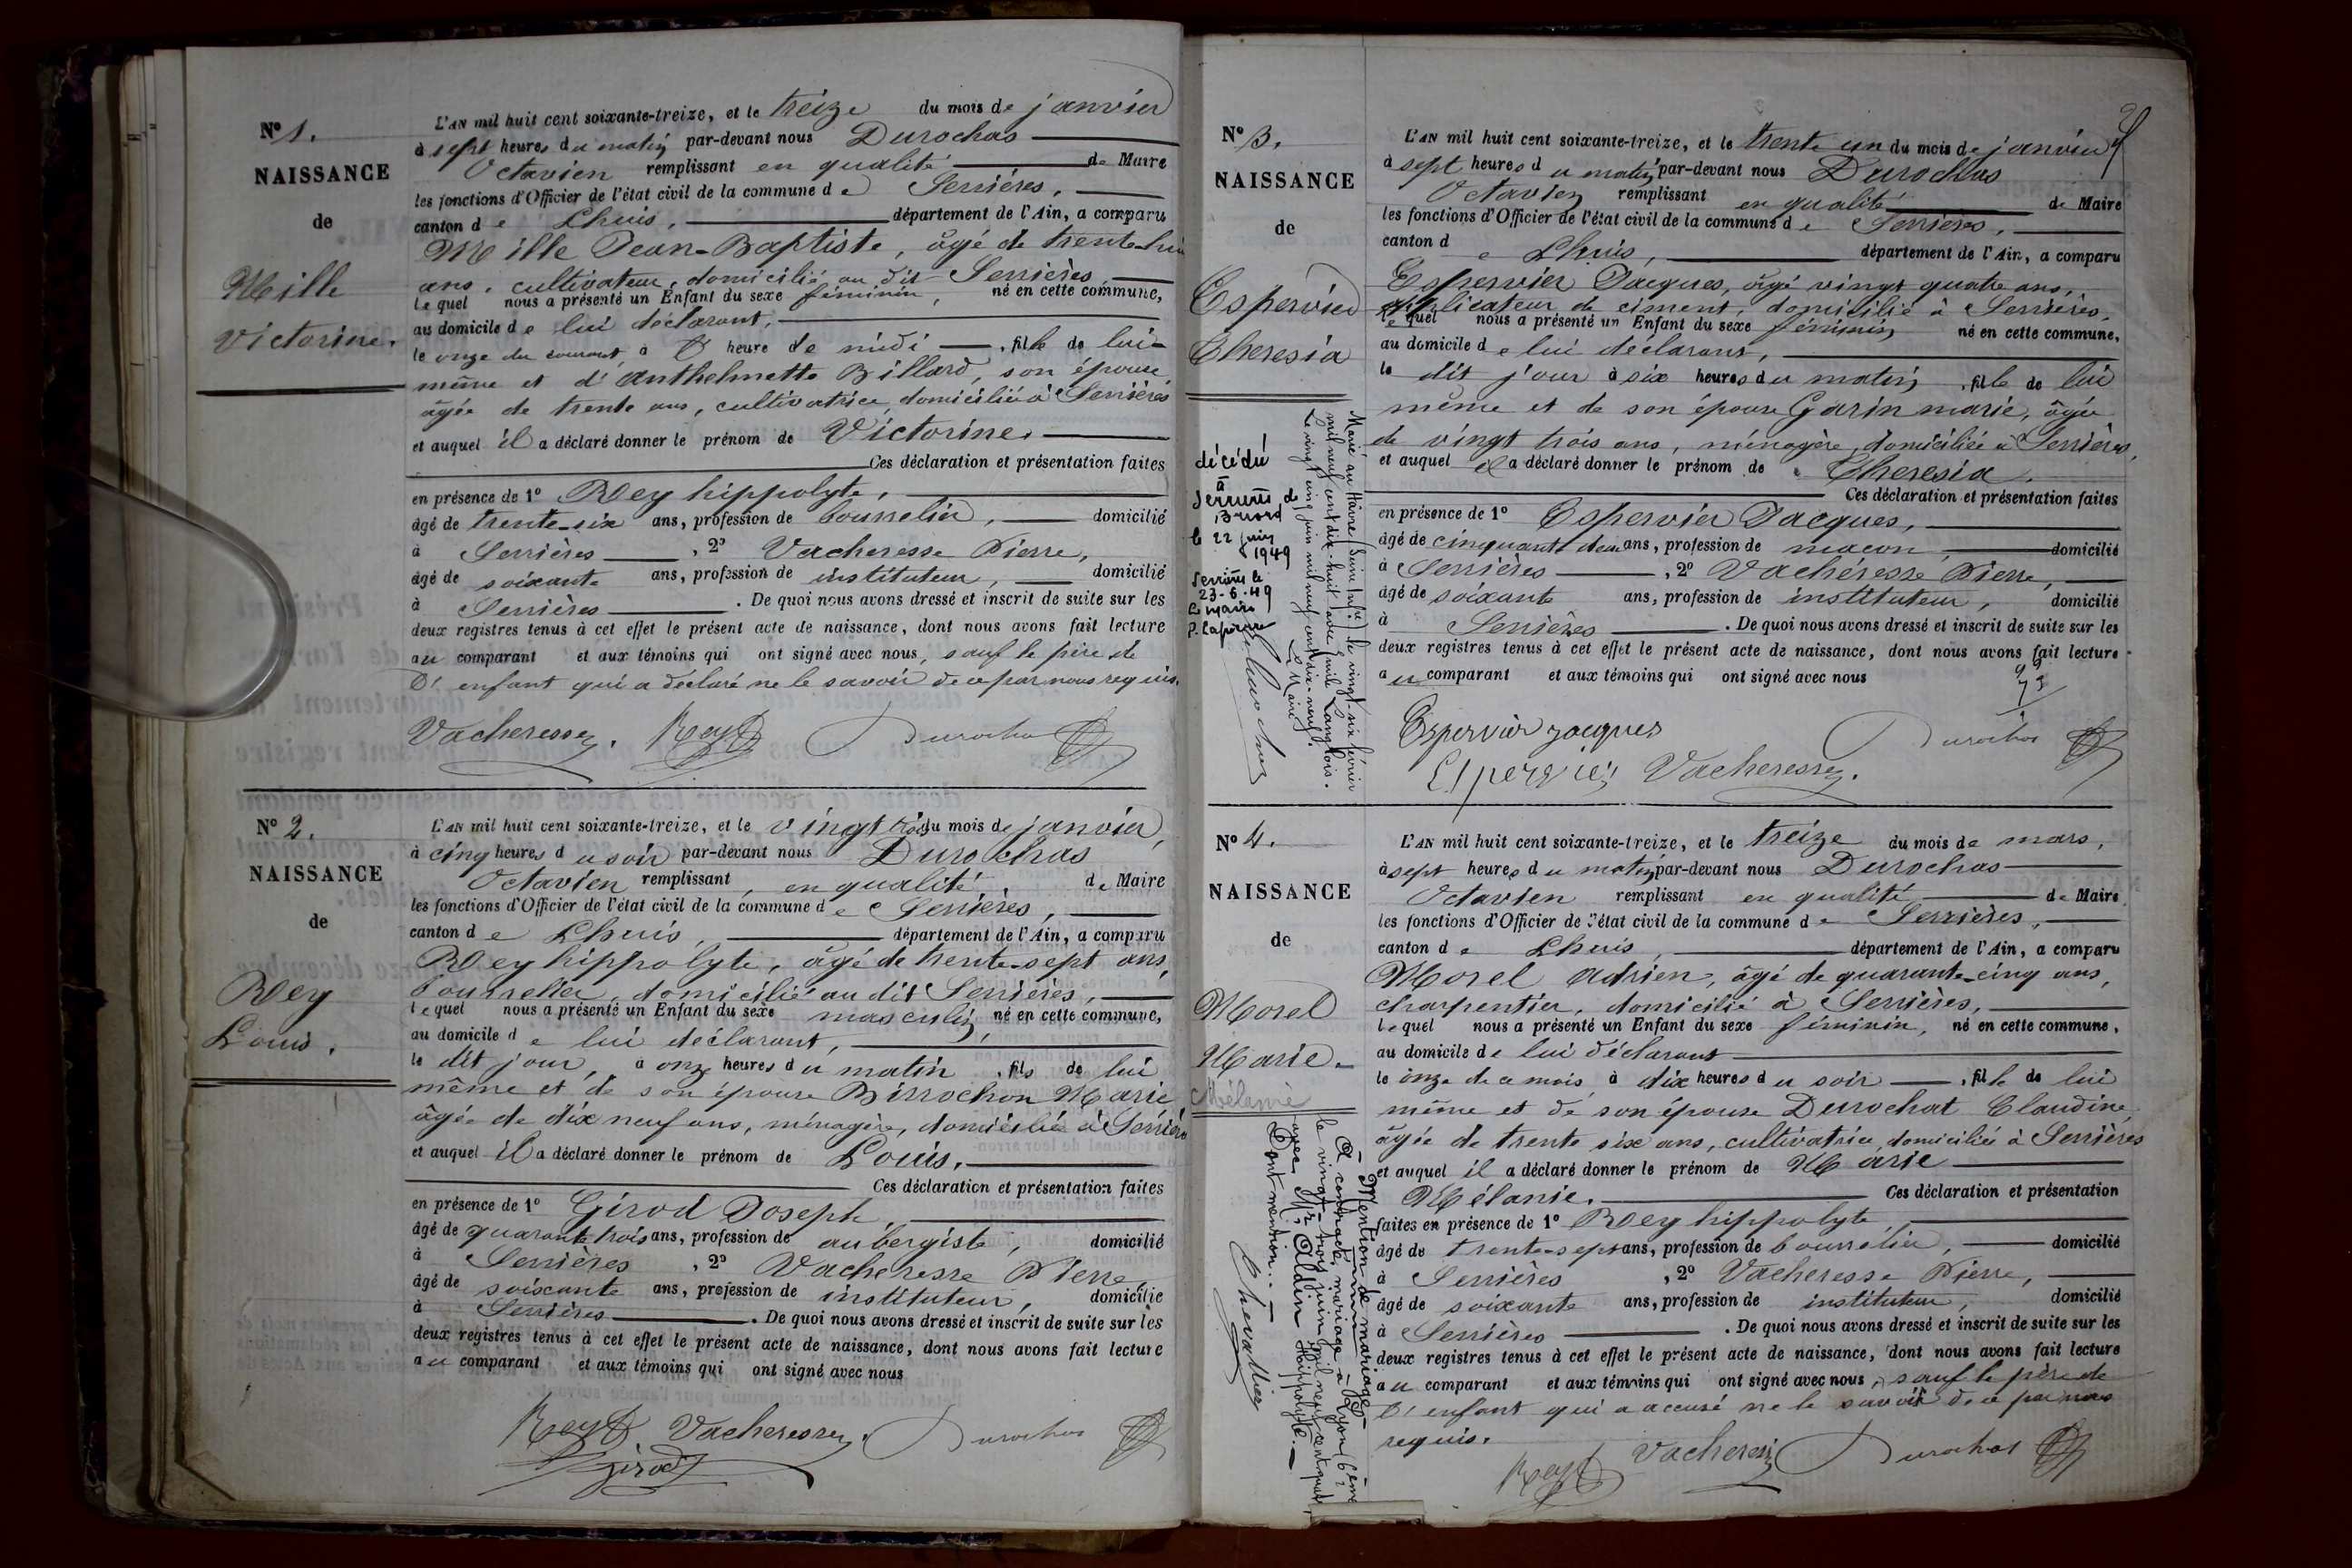 N° 1.
NAISSANCE
de
Mille
Victorine.
L'AN mil huit cent soixante-treize, et le treize du mois de janvier
à sept heures du matin par-devant nous Durochas
Octavien remplissant en qualité de Maire
les fonctions d'Officier de l'état civil de la commune de Serrières,
canton de Lhuis, département de l'Ain, a comparu
Mille Jean-Baptiste, âgé de trente-huit
ans, cultivateur, domicilié au dit Serrières,
lequel nous a présenté un Enfant du sexe féminin, né en cette commune,
au domicile de lui déclarant,
le onze du courant, à l' heure de midi, fille de lui-
même et d'Anthelmette Billard, son épouse,
âgée de trente ans, cultivatrice, domiciliée à Serrières
et auquel il a déclaré donner le prénom de Victorine.
Ces déclaration et présentation faites
en présence de 1° Rey hippolyte,
âgé de trente-six ans, profession de bourrelier, domicilié
à Serrières, 2° Vacheresse Pierre,
âgé de soixante ans, profession de instituteur, domicilié
à Serrières. De quoi nous avons dressé et inscrit de suite sur les
deux registres tenus à cet effet le présent acte de naissance, dont nous avons fait lecture
au comparant et aux témoins qui ont signé avec nous, sauf le père de
l'enfant qui a déclaré ne le savoir de ce par nous requis.
Vacheresse. Rey Durochas
N° 2.
NAISSANCE
de
Rey
Louis.
L'AN mil huit cent soixante-treize, et le vingt du mois de janvier,
à cinq heures du soir par-devant nous Durochas
Octavien remplissant, en qualité, de Maire
les fonctions d'Officier de l'état civil de la commune de Serrières,
canton de Lhuis, département de l'Ain, a comparu
Rey hippolyte, âgé de trente-sept ans,
bourrelier, domicilié au dit Serrières,
lequel nous a présenté un Enfant du sexe masculin, né en cette commune,
au domicile de lui déclarant,
le dit jour, à onze heures du matin, fils de lui
même et de son épouse Birrochon Marie
âgée de dix neuf ans, ménagère, domiciliée à Serrières
et auquel il a déclaré donner le prénom de Louis.
Ces déclaration et présentation faites
en présence de 1° Girod Joseph,
âgé de quarante trois ans, profession de aubergiste, domicilié
à Serrières, 2° Vacheresse Pierre,
âgé de soixante ans, profession de instituteur, domicilié
à Serrières. De quoi nous avons dressé et inscrit de suite sur les
deux registres tenus à cet effet le présent acte de naissance, dont nous avons fait lecture
au comparant et aux témoins qui ont signé avec nous
Rey Vacheresse. Durochas
Girod
N° 3.
NAISSANCE
de
Espervier
Theresia
décédé
à
Serrières de
Briord
le 22 juin
1949
Serrières le
23-6-49
Le maire
P. Lapierre
Marié au Hâvre (Seine Infre) le vingt-six février
mil neuf cent dix-huit avec Emile Langlois.
Le vingt cinq juin mil neuf cent dix-neuf.
Le Maire
L'AN mil huit cent soixante-treize, et le trente un du mois de janvier
à sept heures du matin par-devant nous Durochas
Octavien remplissant en qualité de Maire
les fonctions d'Officier de l'état civil de la commune de Serrières,
canton de Lhuis, département de l'Ain, a comparu
Espervier Jacques, âgé vingt quatre ans,
applicateur de ciment, domicilié à Serrières,
lequel nous a présenté un Enfant du sexe féminin né en cette commune,
au domicile de lui déclarant,
le dit jour à six heures du matin, fille de lui
même et de son épouse Garin marie, âgée
de vingt trois ans, ménagère, domiciliée à Serrières,
et auquel il a déclaré donner le prénom de Theresia.
Ces déclaration et présentation faites
en présence de 1° Espervier Jacques,
âgé de cinquante deux ans, profession de macon, domicilié
à Serrières, 2° Vachéresse Pierre,
âgé de soixante ans, profession de instituteur, domicilié
à Serrières. De quoi nous avons dressé et inscrit de suite sur les
deux registres tenus à cet effet le présent acte de naissance, dont nous avons fait lecture
au comparant et aux témoins qui ont signé avec nous
Espervier jacques Durochas
Espervier Vacheresse.
N° 4.
NAISSANCE
de
Morel
Marie.
Mélanie
- Mention de mariage -
A contracté mariage à Lyon 6ème
le vingt-trois juin mil neuf cent quatre,
avec Mr. Aldin Hippolyte.
Dont mention.
Chevallier
L'AN mil huit cent soixante-treize, et le treize du mois de mars,
à sept heures du matin par-devant nous Durochas
Octavien remplissant en qualité de Maire
les fonctions d'Officier de l'état civil de la commune de Serrières,
canton de Lhuis, département de l'Ain, a comparu
Morel Adrien, âgé de quarante-cinq ans,
charpentier, domicilié à Serrières,
lequel nous a présenté un Enfant du sexe féminin, né en cette commune,
au domicile de lui déclarant
le onze de ce mois à dix heures du soir, fille de lui
même et de son épouse Durochat Claudine
âgée de trente six ans, cultivatrice, domiciliée à Serrières
et auquel il a déclaré donner le prénom de Marie
Mélanie. Ces déclaration et présentation
faites en présence de 1° Rey hippolyte,
âgé de trente-sept ans, profession de bourrelier, domicilié
à Serrières, 2° Vacheresse Pierre,
âgé de soixante ans, profession de instituteur, domicilié
à Serrières. De quoi nous avons dressé et inscrit de suite sur les
deux registres tenus à cet effet le présent acte de naissance, dont nous avons fait lecture
au comparant et aux témoins qui ont signé avec nous, sauf le père de
l'enfant qui a accusé ne le savoir de ce par nous
requis.
Rey Vacheresse Durochas